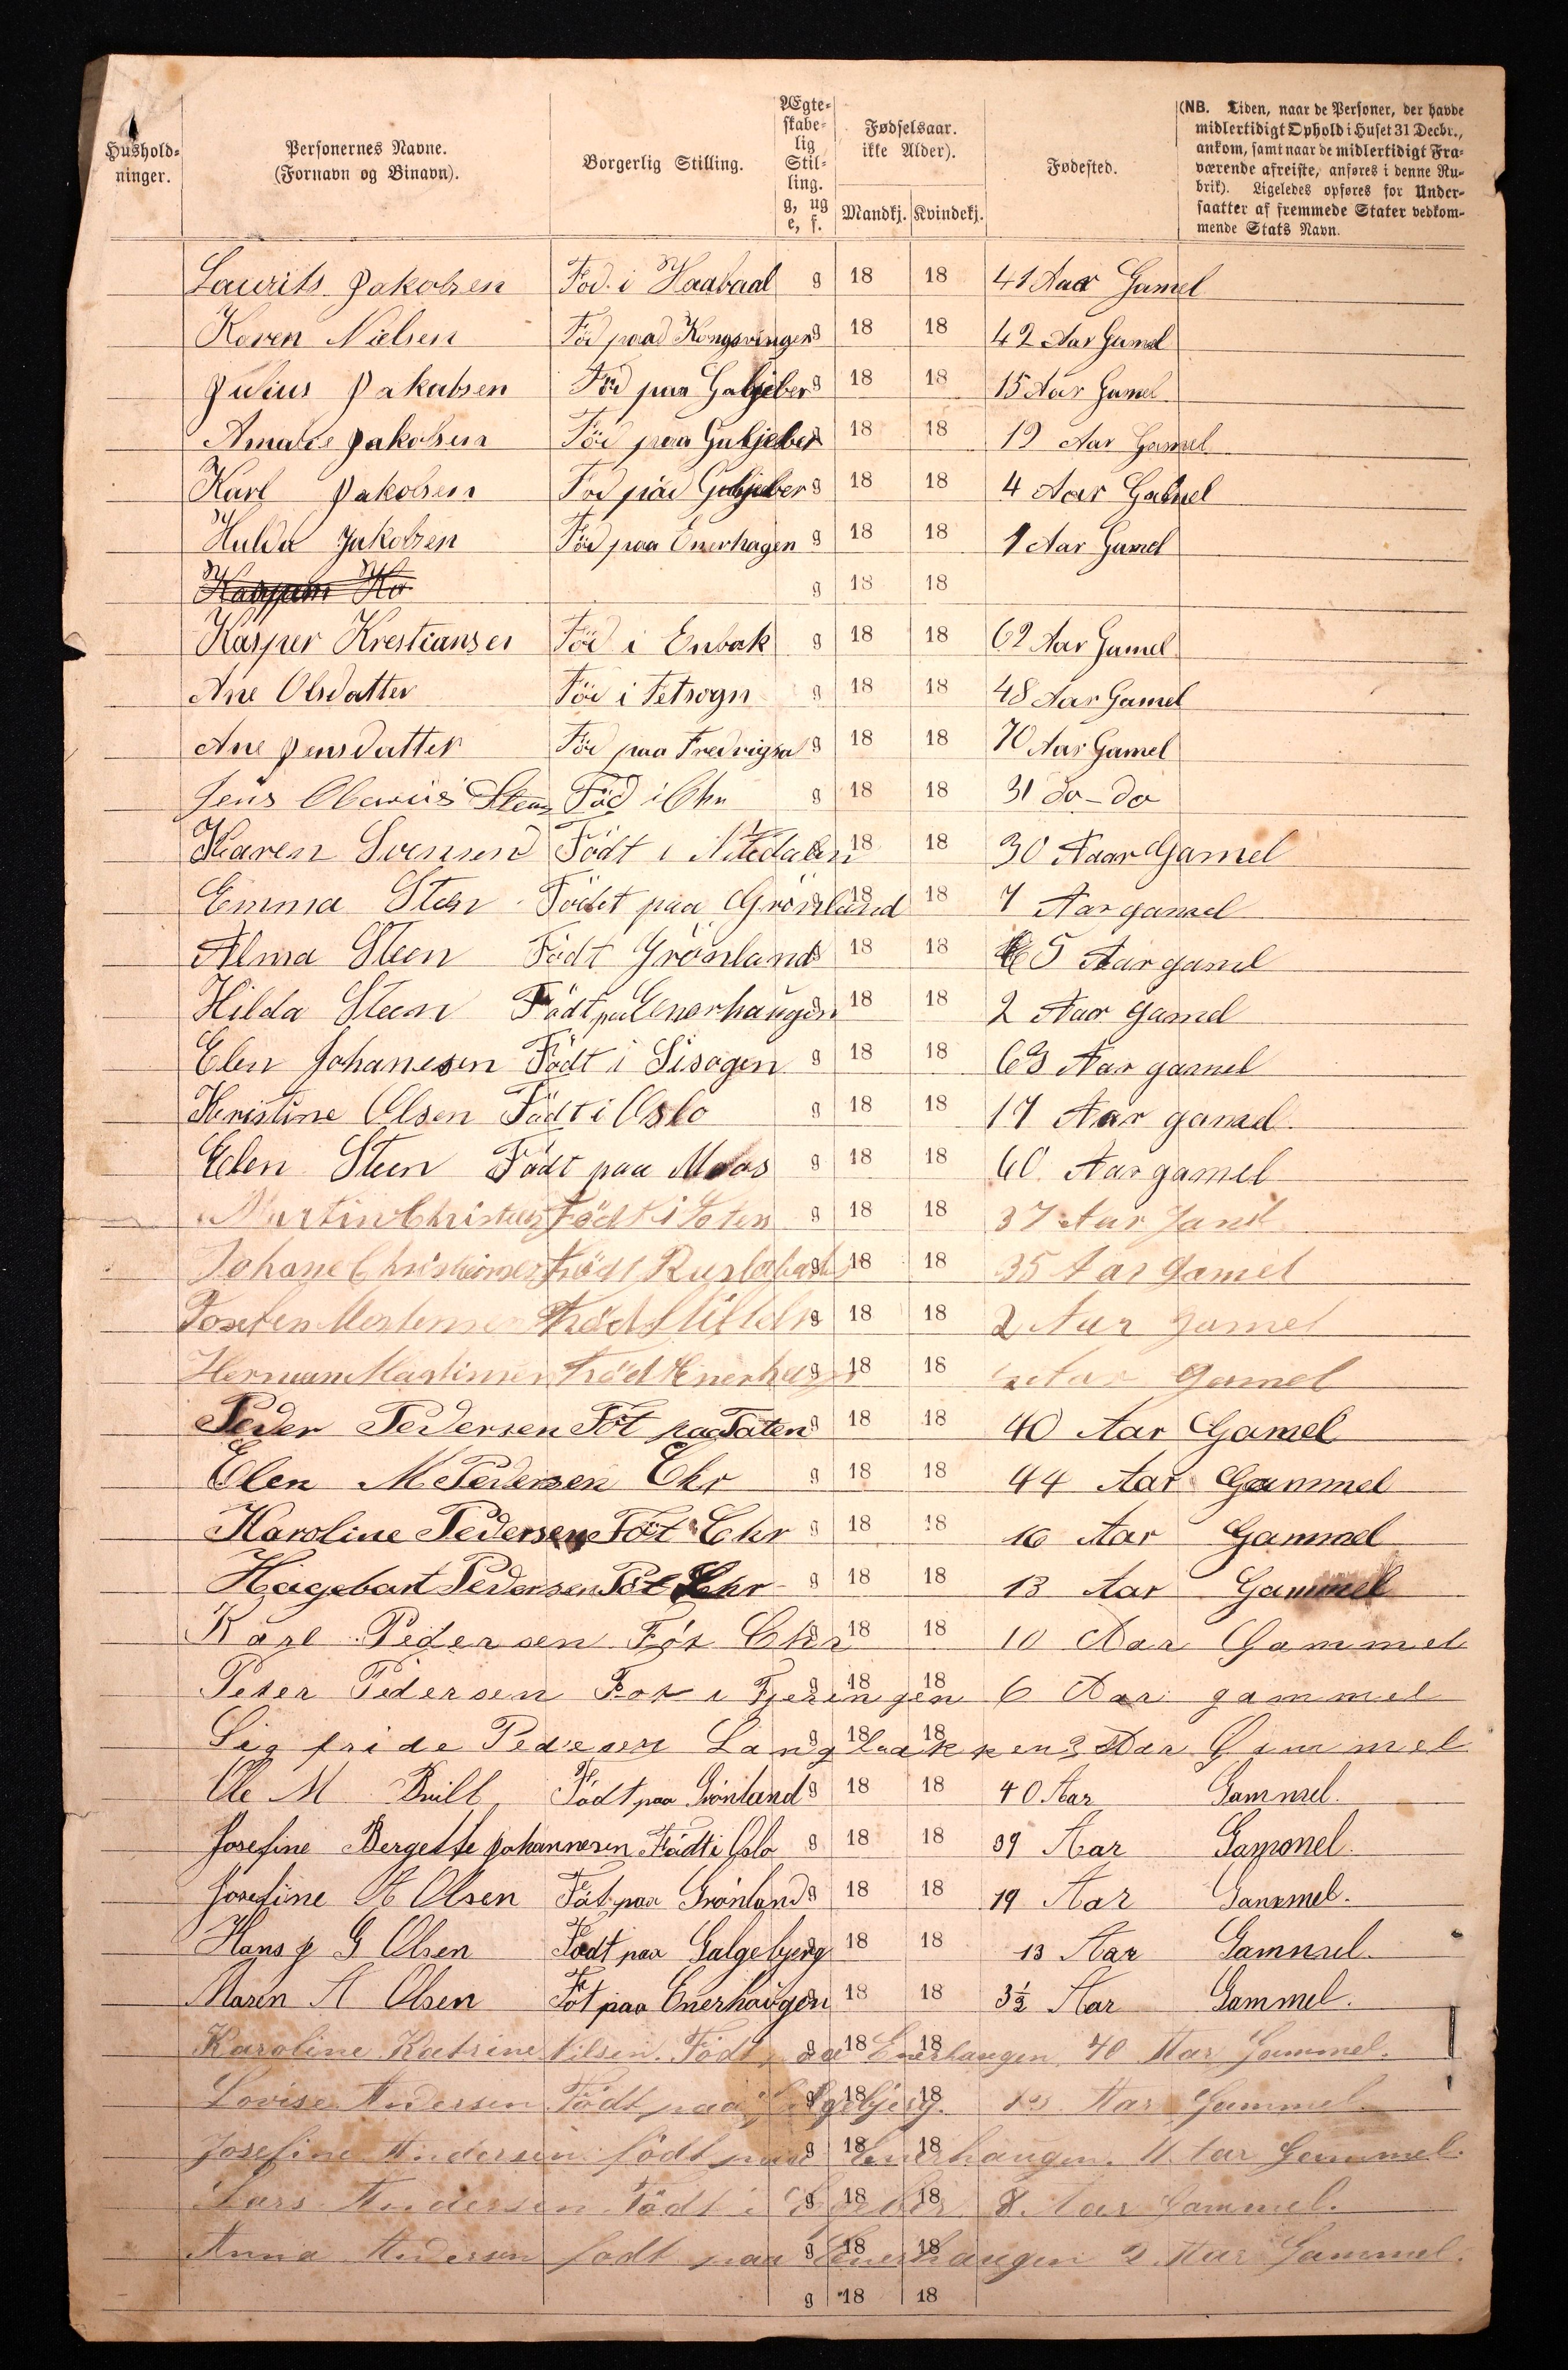 Hushold-
ninger.
Personernes Navne.
(Fornavn og Binavn).
Borgerlig Stilling.
Ægte-
skabe-
lig
Stil-
ling.
g, ug
e, f.
Fødselsaar.
ikke Alder).
Mandkj. Kvindekj.
Fødested.
(NB. Tiden, naar de Personer, der havde
midlertidigt Ophold i Huset 31 Decbr.,
ankom, samt naar de midlertidigt Fra-
værende afreiste, anføres i denne Ru-
brik). Ligeledes opføres for Under-
saatter af fremmede Stater vedkom-
mende Stats Navn.
Laurits Jakobsen Fød i Haabaal g 18 18 41 Aar Gamel
Karen Nielsen Föd paa Kongsvinger g 18 18 42 Aar Gamel
Julius Jakobsen Föd paa Galjeber g 18 18 15 Aar Gamel
Amalie Jakobsen Föd paa Galjeber g 18 18 12 Aar Gamel
Karl Jakobsen Fod paa Galjeber g 18 18 4 Aar Gamel
Hulda Jakobsen Föd paa Enerhagen g 18 18 1 Aar Gamel
g 18 18
Kasper Krestiansen Föd i Enbak g 18 18 62 Aar Gamel
Ane Olsdatter Föd i Fetsogn g 18 18 48 Aar Gamel
Ane Jensdatter Föd paa Fredrigsa g 18 18 70 Aar Gamel
Jens Olavius Steen Föd i Chr g 18 18 31 do-do
Karen Svensen Födt i Nitedalen g 18 18 30 Aaar Gamel
Emma Sten Födet paa Grönland g 18 18 7 Aar gamel
Alma Steen Födt Grönland g 18 18 5 Aar gamel
Hilda Steen Födt paa Enerhaugen g 18 18 2 Aar gamel
Elen Johanesen Födt i Sisogen g 18 18 63 Aar gamel
Kristine Olsen Födt i Oslo g 18 18 17 Aar gamel
Elen Steen Födt paa Moos g 18 18 60 Aar gamel
Martin Födt i Toten g 18 18 37 Aar
Johane Födt g 18 18 35 Aar Gamel
g 18 18 2 Aar Gamel
Herman Martinsen Föd Enerhagen g 18 18 Aar Gamel
Peder Pedersen Föt paa Toten g 18 18 40 Aar Gamel
Elen M Pedersen Chr g 18 18 44 Aar Gammel
Karoline Pedersen Föt Chr g 18 18 16 Aar Gammel
Hagebart Pedersen Föt Chr g 18 18 13 Aar Gammel
Karl Pedersen Föt Chr g 18 18 10 Aar Gammel
Peter Pedersen Fot i Fjeringen g 18 18 6 Aar gammel
Sigfride Pedesen Langlaakken g 18 18 3 Aar Gammel
Ole M Brill Födt paa Grönland g 18 18 40 Aar Gammel.
Josefine Bergette Johannesen Födt i Oslo g 18 18 39 Aar Gammel.
Josefine A Olsen Föt paa Grönland g 18 18 19 Aar Gammel.
Hans J G Olsen Födt paa Galgebjerg g 18 18 13 Aar Gammel.
Maren A Olsen Föt paa Enerhaugen g 18 18 3½ Aar Gammel.
Karoline Katrine Nilsen. Födt paa Enerhaugen g 18 18 40 Aar Gammel.
Lovise Andersen Födt paa Galgebjerg. g 18 18 13 Aar Gammel.
Josefine Andersen födt paa Enerhaugen. g 18 18 11 Aar Gammel.
Lars Andersen Födt i g 18 18 8. Aar Gammel.
Anna Andersen födt paa Enerhaugen g 18 18 2 Aar Gammel.
g 18 18